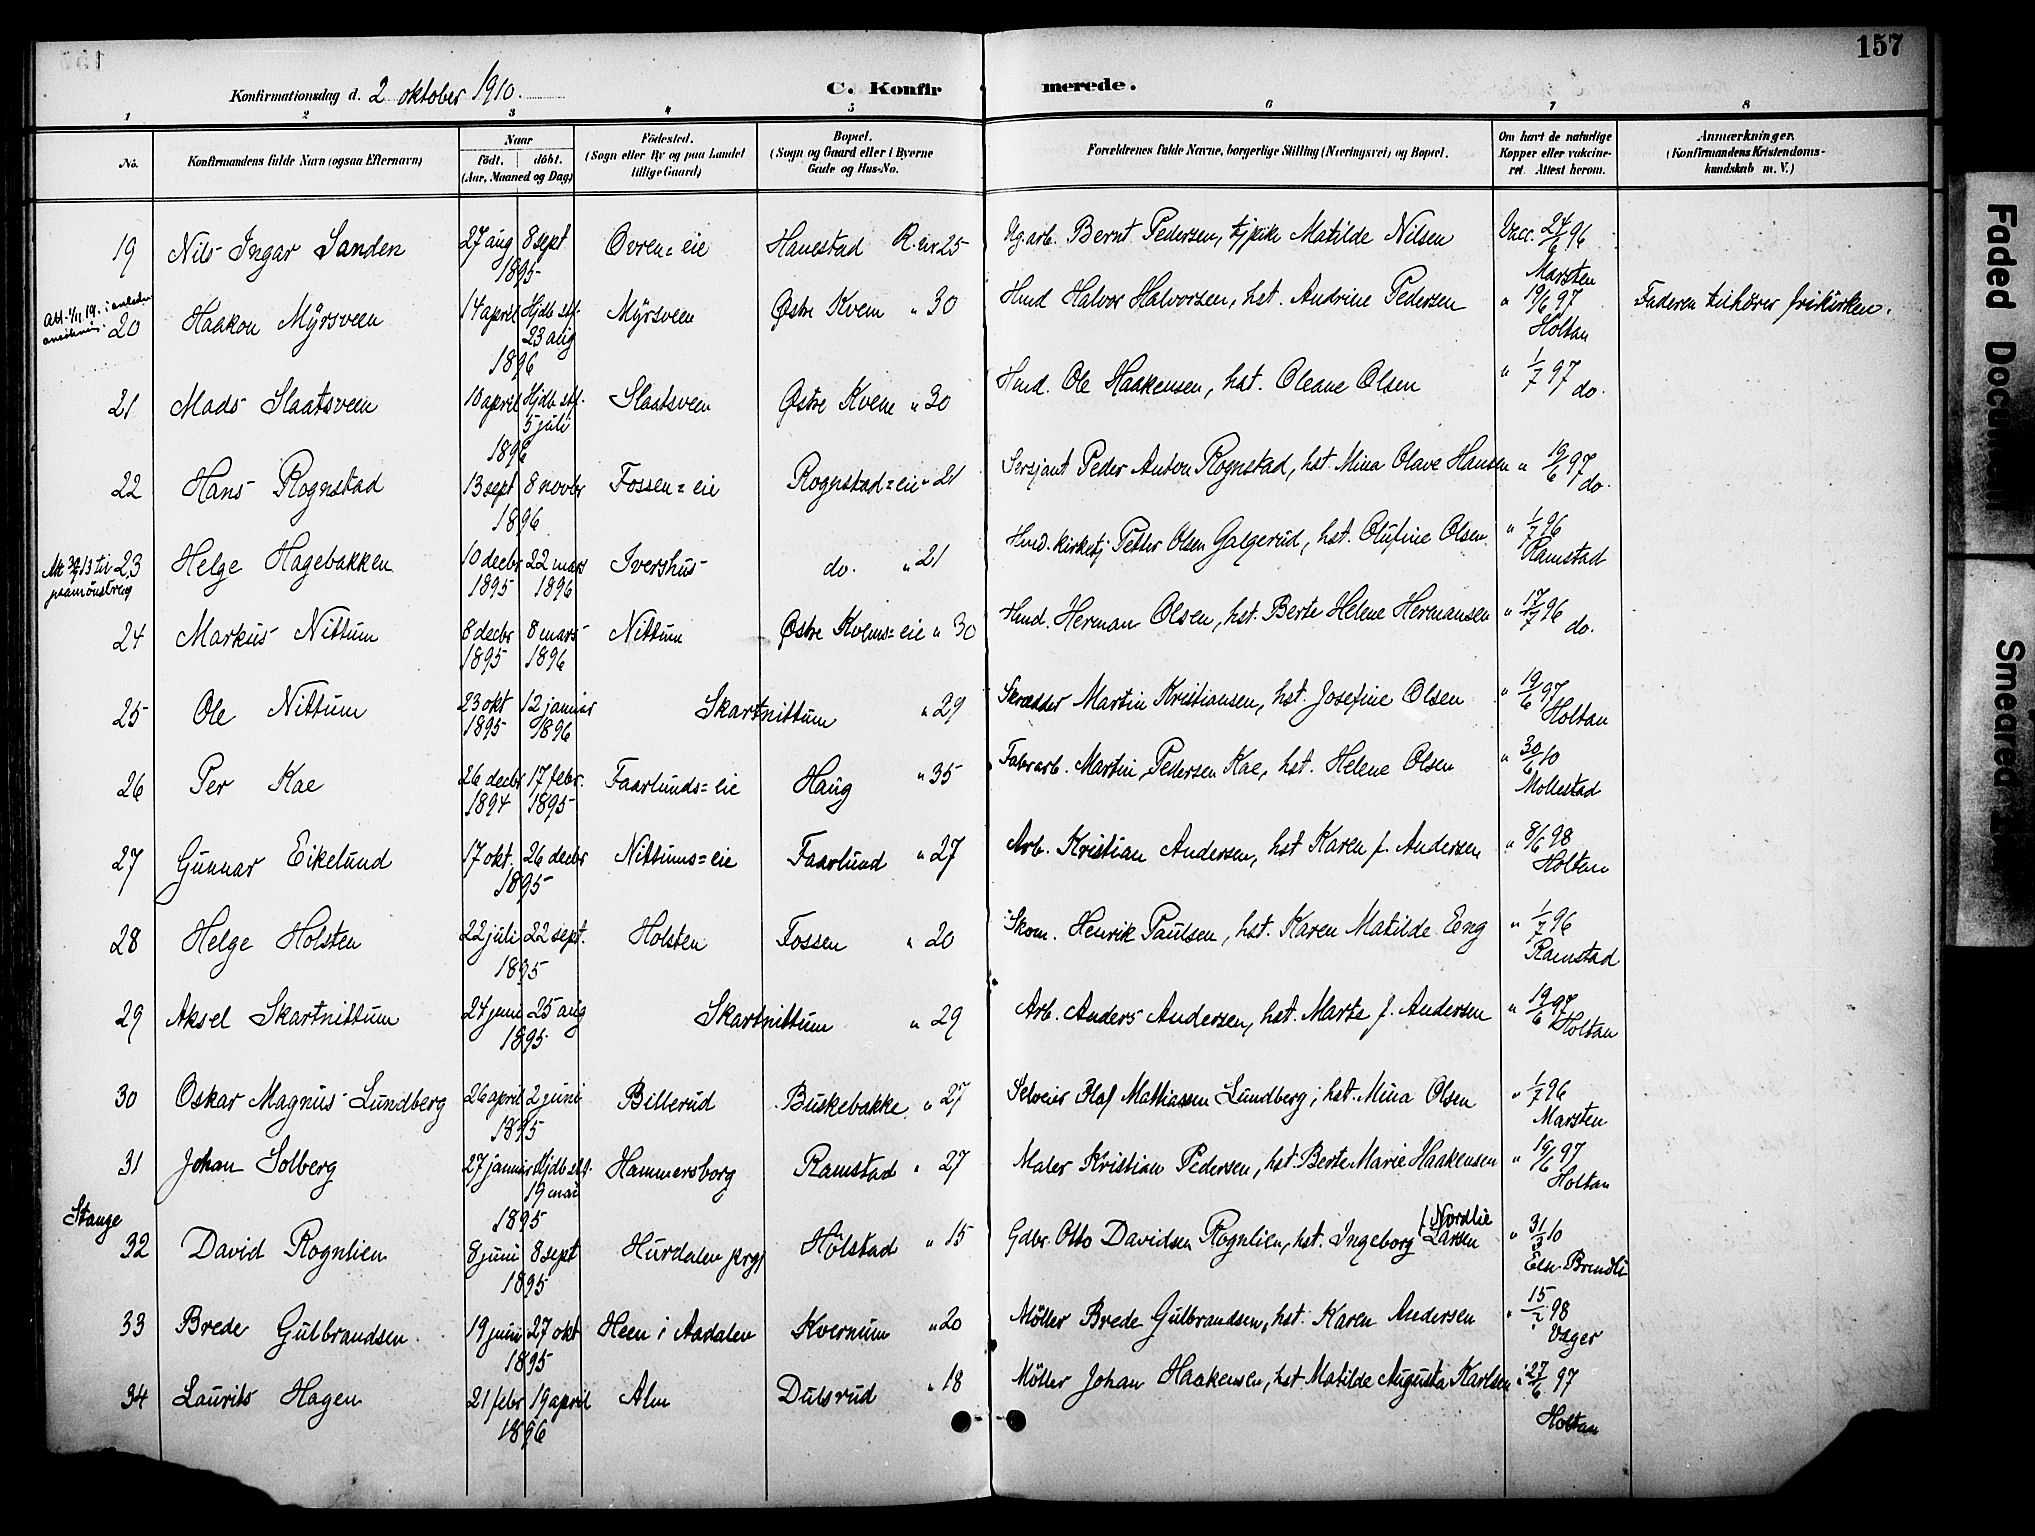 157
Konfirmationsdag d. 2 oktober 1910. C. Konfirmerede.
1 2 3 4 5 6 7 8
No. Konfirmandens fulde Navn (ogsaa Efternavn) Naar født, døbt. (Aar, Maaned og Dag) Fødested. (Sogn eller By og paa Landet tillige Gaard) Bopæl. (Sogn og Gaard eller i Byerne Gade og Hus-No. Forældrenes fulde Navne, borgerlige Stilling (Næringsvei) og Bopæl. Om havt de naturlige Kopper eller vakcineret. Attest herom. Anmærkninger. (Konfirmandens Kristendomskundskab m. V.)
19 Nils Ingar Sanden 27 aug 8 sept. 1895 Øvren=eie Hanestad R. 25 Ug.arb. Bernt Pedersen, tj.pike Matilde Nilsen Vacc. 24/6 96 Marsten
20 Haakon Myrsveen 14 april Hjdb. stf. 23 aug 1896 Myrsveen Østre Kvem " 30 Hmd Halvor Halvorsen, hst. Andrine Pedersen " 19/6 97 Holtan Faderen tilhører frikirken.
21 Mads Slaatsveen 10 april Hjdb. stf. 5 juli 1896 Slaatsveen Østre Kvem " 30 Hmd. Ole Haakensen, hst. Oleane Olsen " 1/7 97 do.
22 Hans Rognstad 13 sept 8 novbr 1896 Fossen=eie Rognstad=eie " 21 Sersjant Peder Anton Rognstad, hst. Mina Olave Hansen " 19/6 97 do.
23 Helge Hagebakken 10 decbr 1895 22 mars 1896 Ivershus do. " 21 Hmd. kirketj Petter Olsen Galgerud, hst. Olufine Olsen. " 1/7 96 Ramstad
24 Markus Nittum 8 decbr 1895 8 mars 1896 Nittum Østre Kvems=eie " 30 Hmd. Herman Olsen, hst. Berte Helene Hermansen " 17/7 96 do.
25 Ole Nittum 23 okt 1895 12 januar 1896 Skartnittum " 29 Skrædder Martin Kristiansen, hst. Josefine Olsen " 19/6 97 Holtan
26 Per Kae 26 decbr 1894 17 febr. 1895 Faarlunds=eie Haug " 35 Fabrarb. Martin Pedersen Kae, hst. Helene Olsen " 30/6 10 Mollestad
27 Gunnar Eikelund 17 okt. 26 decbr 1895 Nittums=eie Faarlund " 27 Arb. Kristian Andersen, hst Karen f. Andersen " 8/6 98 Holtan
28 Helge Holsten 22 juli 22 sept. 1895 Holsten Fossen " 20 Skom. Henrik Paulsen, hst. Karen Matilde Eng " 1/7 96 Ramstad
29 Aksel Skartnittum 24 juni 25 aug 1895 Skartnittum " 29 Arb. Anders Andersen, hst. Marte f. Andersen " 19/6 97 Holtan
30 Oskar Magnus Lundberg 26 april 2 juni 1895 Billerud Buskebakke " 27 Selveier Olaf Mathiassen Lundberg, hst. Mina Olsen " 1/7 96 Marsten
31 Johan Solberg 27 januar Hjdb. stf. 19 mai 1895 Hammersborg Ramstad " 27 Maler Kristian Pedersen, hst. Berte Marie Haakensen " 19/6 97 Holtan
Stange
32 David Rognlien 8 juni 8 sept 1895 Hurdalen prgj Hølstad " 15 Gdbr. Otto Davidsen Rognlien, hst. Ingeborg Larsen Nordlie " 31/3 10
33 Brede Gulbrandsen 19 juni 27 okt 1895 Heen i Aadalen Kvernum " 20 Møller Brede Gulbrandsen, hst. Karen Andersen " 15/7 98
34 Laurits Hagen 21 febr 19 april 1896 Alm Dulsrud " 18 Møller Johan Haakensen, hst. Matilde Augusta Karlsen " 27/6 97 Holtan
Faded Document
Smeared